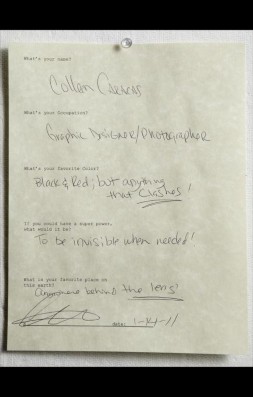 What's your name?
Collan
What's your Occupation?
Graphic Designer/Photographer
What's your favorite Color?
Black & Red, but anything
that clashes!
If you could have a super power,
what would it be?
To be invisible when needed!
What is your favorite place on
this earth?
Anywhere behind the lens!
date: 1-14-11